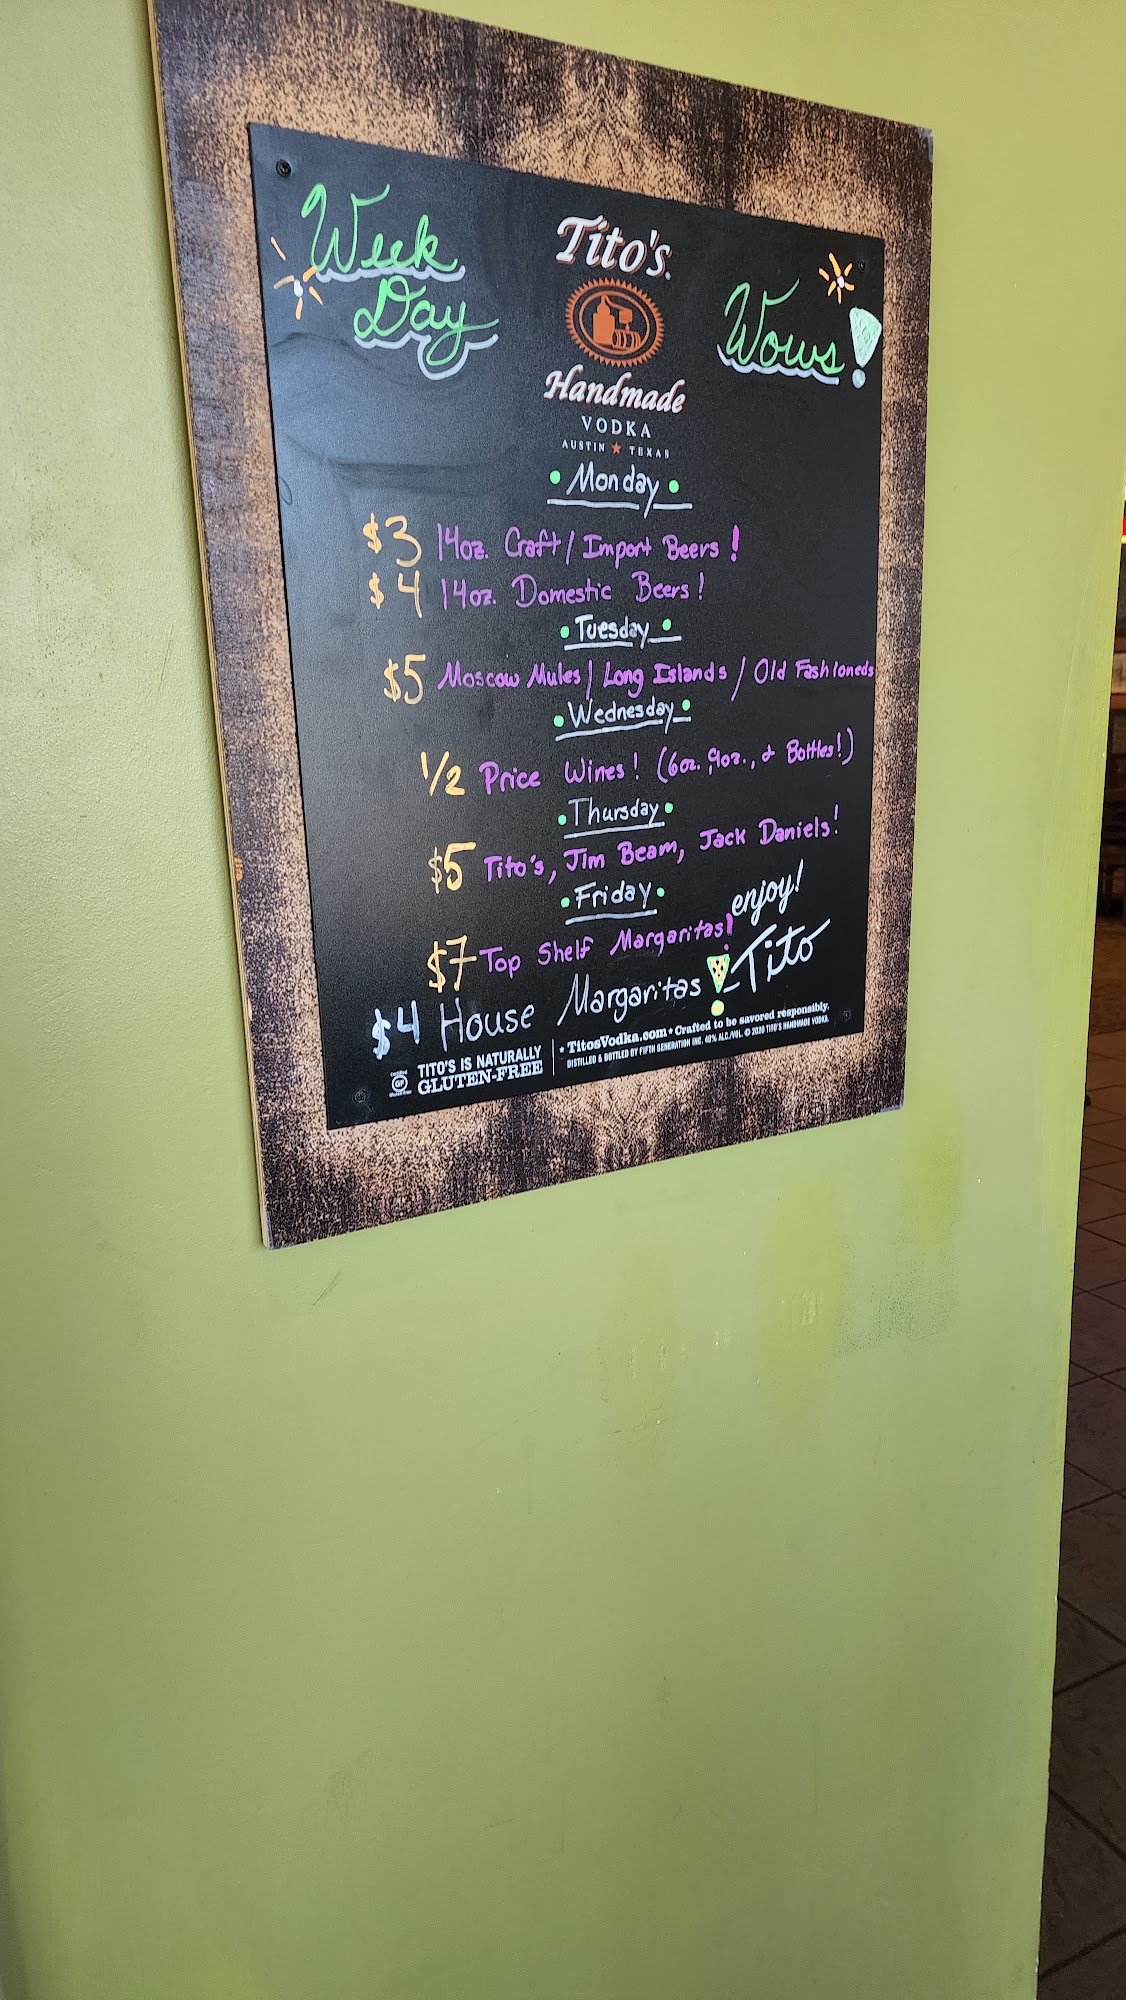 Week
Day
Tito's
Wows!
Handmade
VODKA
AUSTIN ★ TEXAS
• Monday •
$3 14oz. Craft / Import Beers!
$4 14oz. Domestic Beers!
• Tuesday •
$5 Moscow Mules / Long Islands / Old Fashioneds
• Wednesday •
1/2 Price Wines! (6oz., 9oz., & Bottles!)
• Thursday •
$5 Tito's, Jim Beam, Jack Daniels!
• Friday •
enjoy!
$7 Top Shelf Margaritas!
-Tito
$4 House Margaritas!
GF
TITO'S IS NATURALLY
GLUTEN-FREE
* TitosVodka.com * Crafted to be savored responsibly.
DISTILLED & BOTTLED BY FIFTH GENERATION INC. 40% ALC./VOL. © 2020 TITO'S HANDMADE VODKA.